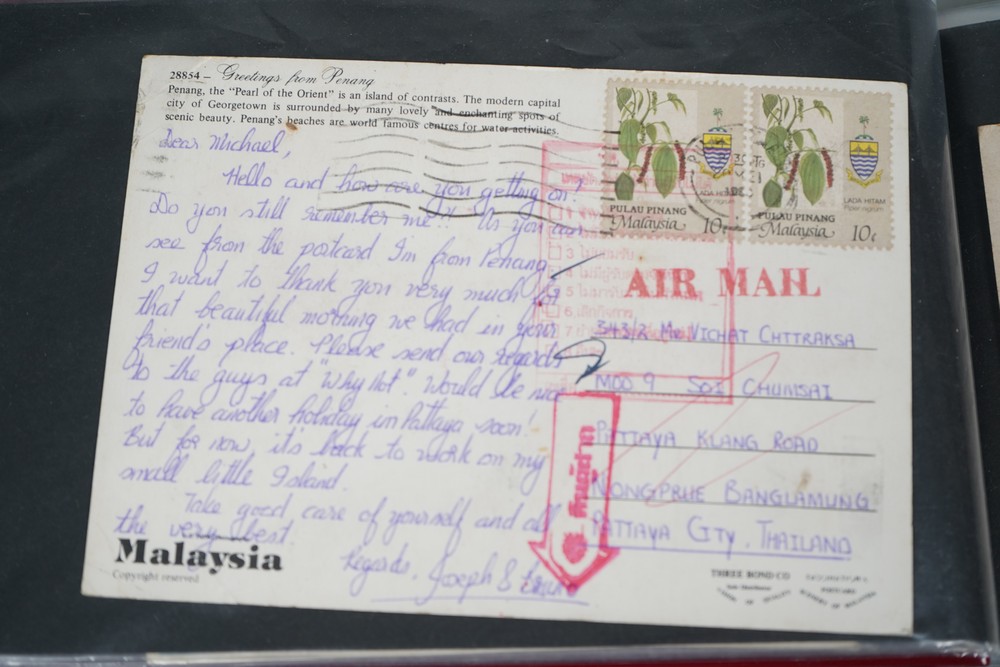 28854 – Greetings from Penang
Penang, the "Pearl of the Orient" is an island of contrasts. The modern capital
city of Georgetown is surrounded by many lovely and enchanting spots of
scenic beauty. Penang's beaches are world famous centres for water activities.
Dear Michael,
Hello and how are you getting on?
Do you still remember me!! As you can
see from the postcard I'm from Penang.
I want to thank you very much for
that beautiful morning we had in your
friend's place. Please send our regards
to the guys at "Why Not". Would be nice
to have another holiday in Pattaya soon!
But for now, it's back to work on my
small little Island.
Take good care of yourself and all
the very best.
Regards, Joseph &
Malaysia
Copyright reserved
PULAU PINANG
Malaysia
10¢
LADA HITAM
Piper nigrum
PULAU PINANG
Malaysia
10¢
LADA HITAM
Piper nigrum
AIR MAIL
343/2 Mr. VICHAT CHTTRAKSA
MOO 9 SOI CHUMSAI
PATTAYA KLANG ROAD
NONGPRUE BANGLAMUNG
PATTAYA CITY. THAILAND
3
4
5
6
7
THREE BOND CO